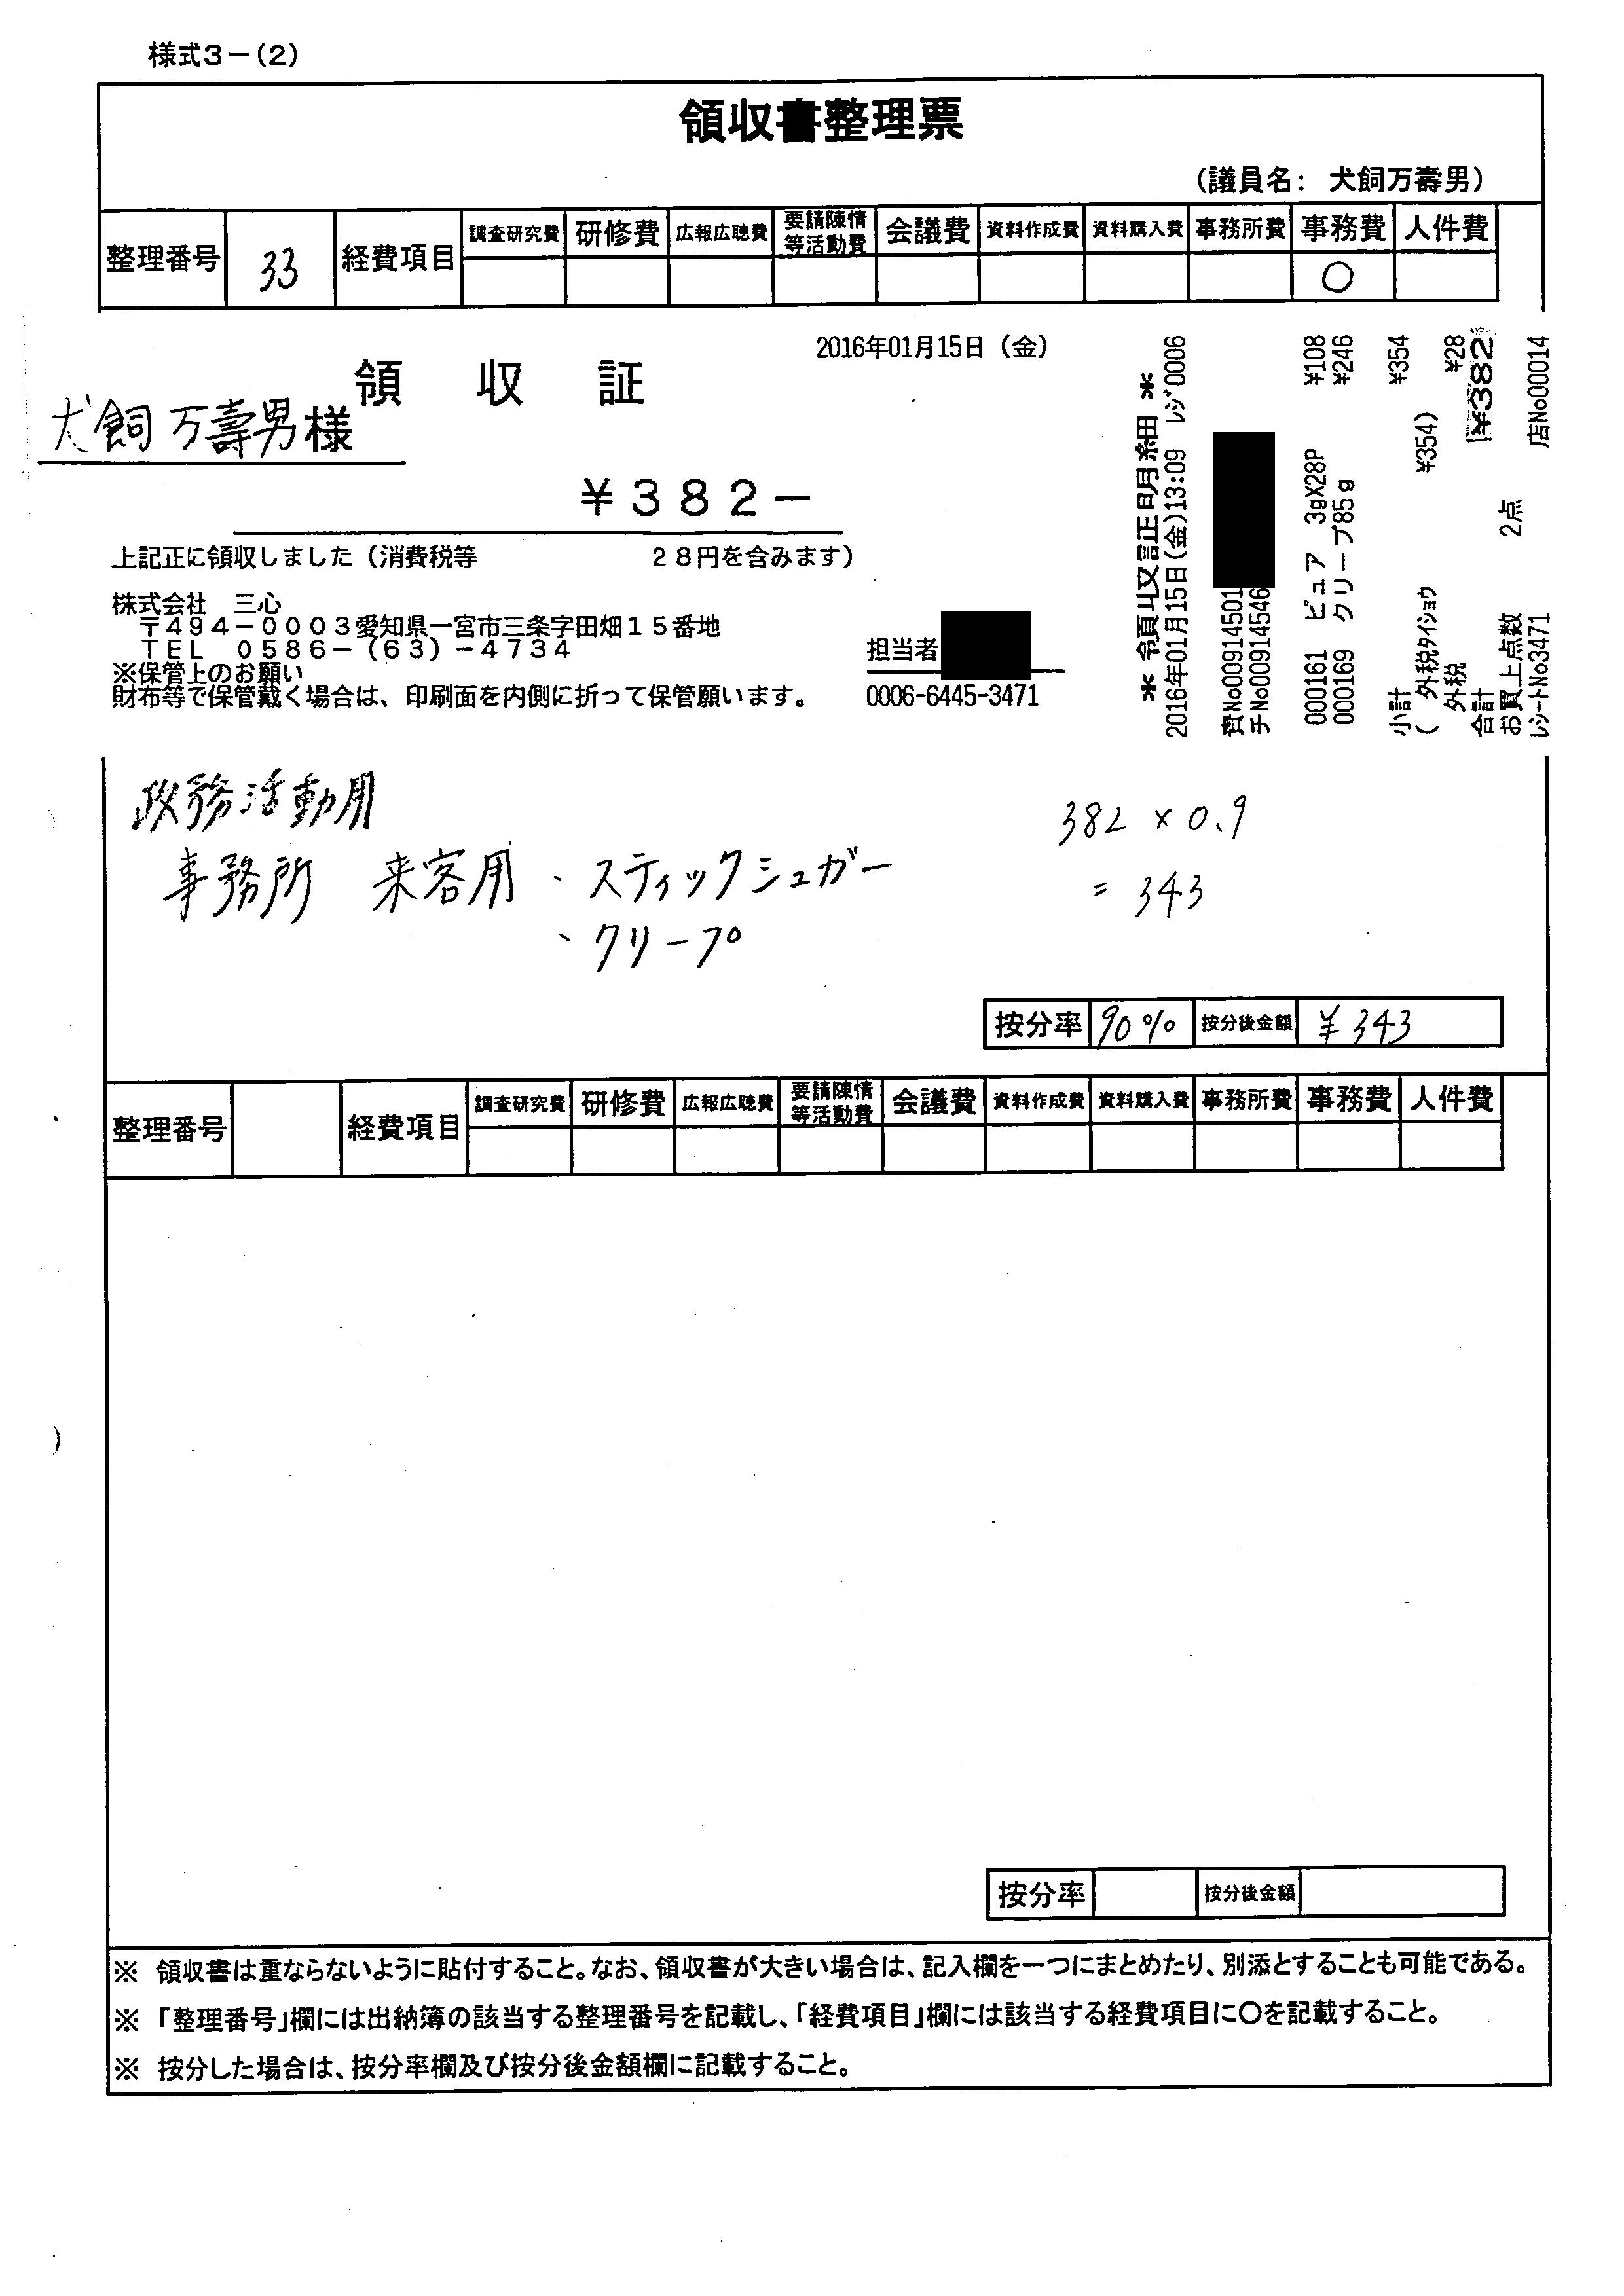 様式3－(2)
領収書整理票
(議員名: 犬飼万壽男)
整理番号 33 経費項目 調査研究費 研修費 広報広聴費 要請陳情等活動費 会議費 資料作成費 資料購入費 事務所費 事務費 人件費
○
2016年01月15日（金）
領収証
犬飼万壽男様
￥３８２－
上記正に領収しました（消費税等 ２８円を含みます）
株式会社 三心
〒４９４－０００３愛知県一宮市三条字田畑１５番地
ＴＥＬ ０５８６－（６３）－４７３４
※保管上のお願い
財布等で保管戴く場合は、印刷面を内側に折って保管願います。
担当者
0006-6445-3471
** 領収証明細 **
2016年01月15日(金)13:09 ﾚｼﾞ0006
責No00914501
チNo00914546
000161 ピュア 3gX28P ¥108
000169 クリープ85g ¥246
小計 ¥354
( 外税ﾀｲｼｮｳ ¥354)
外税 ¥28
合計 ¥382
お買上点数 2点
ﾚｼｰﾄNo3471 店No00014
政務活動用
事務所 来客用 、スティックシュガー
、クリープ
382 × 0.9
= 343
按分率 90% 按分後金額 ¥343
整理番号 経費項目 調査研究費 研修費 広報広聴費 要請陳情等活動費 会議費 資料作成費 資料購入費 事務所費 事務費 人件費
按分率 按分後金額
※ 領収書は重ならないように貼付すること。なお、領収書が大きい場合は、記入欄を一つにまとめたり、別添とすることも可能である。
※ 「整理番号」欄には出納簿の該当する整理番号を記載し、「経費項目」欄には該当する経費項目に○を記載すること。
※ 按分した場合は、按分率欄及び按分後金額欄に記載すること。